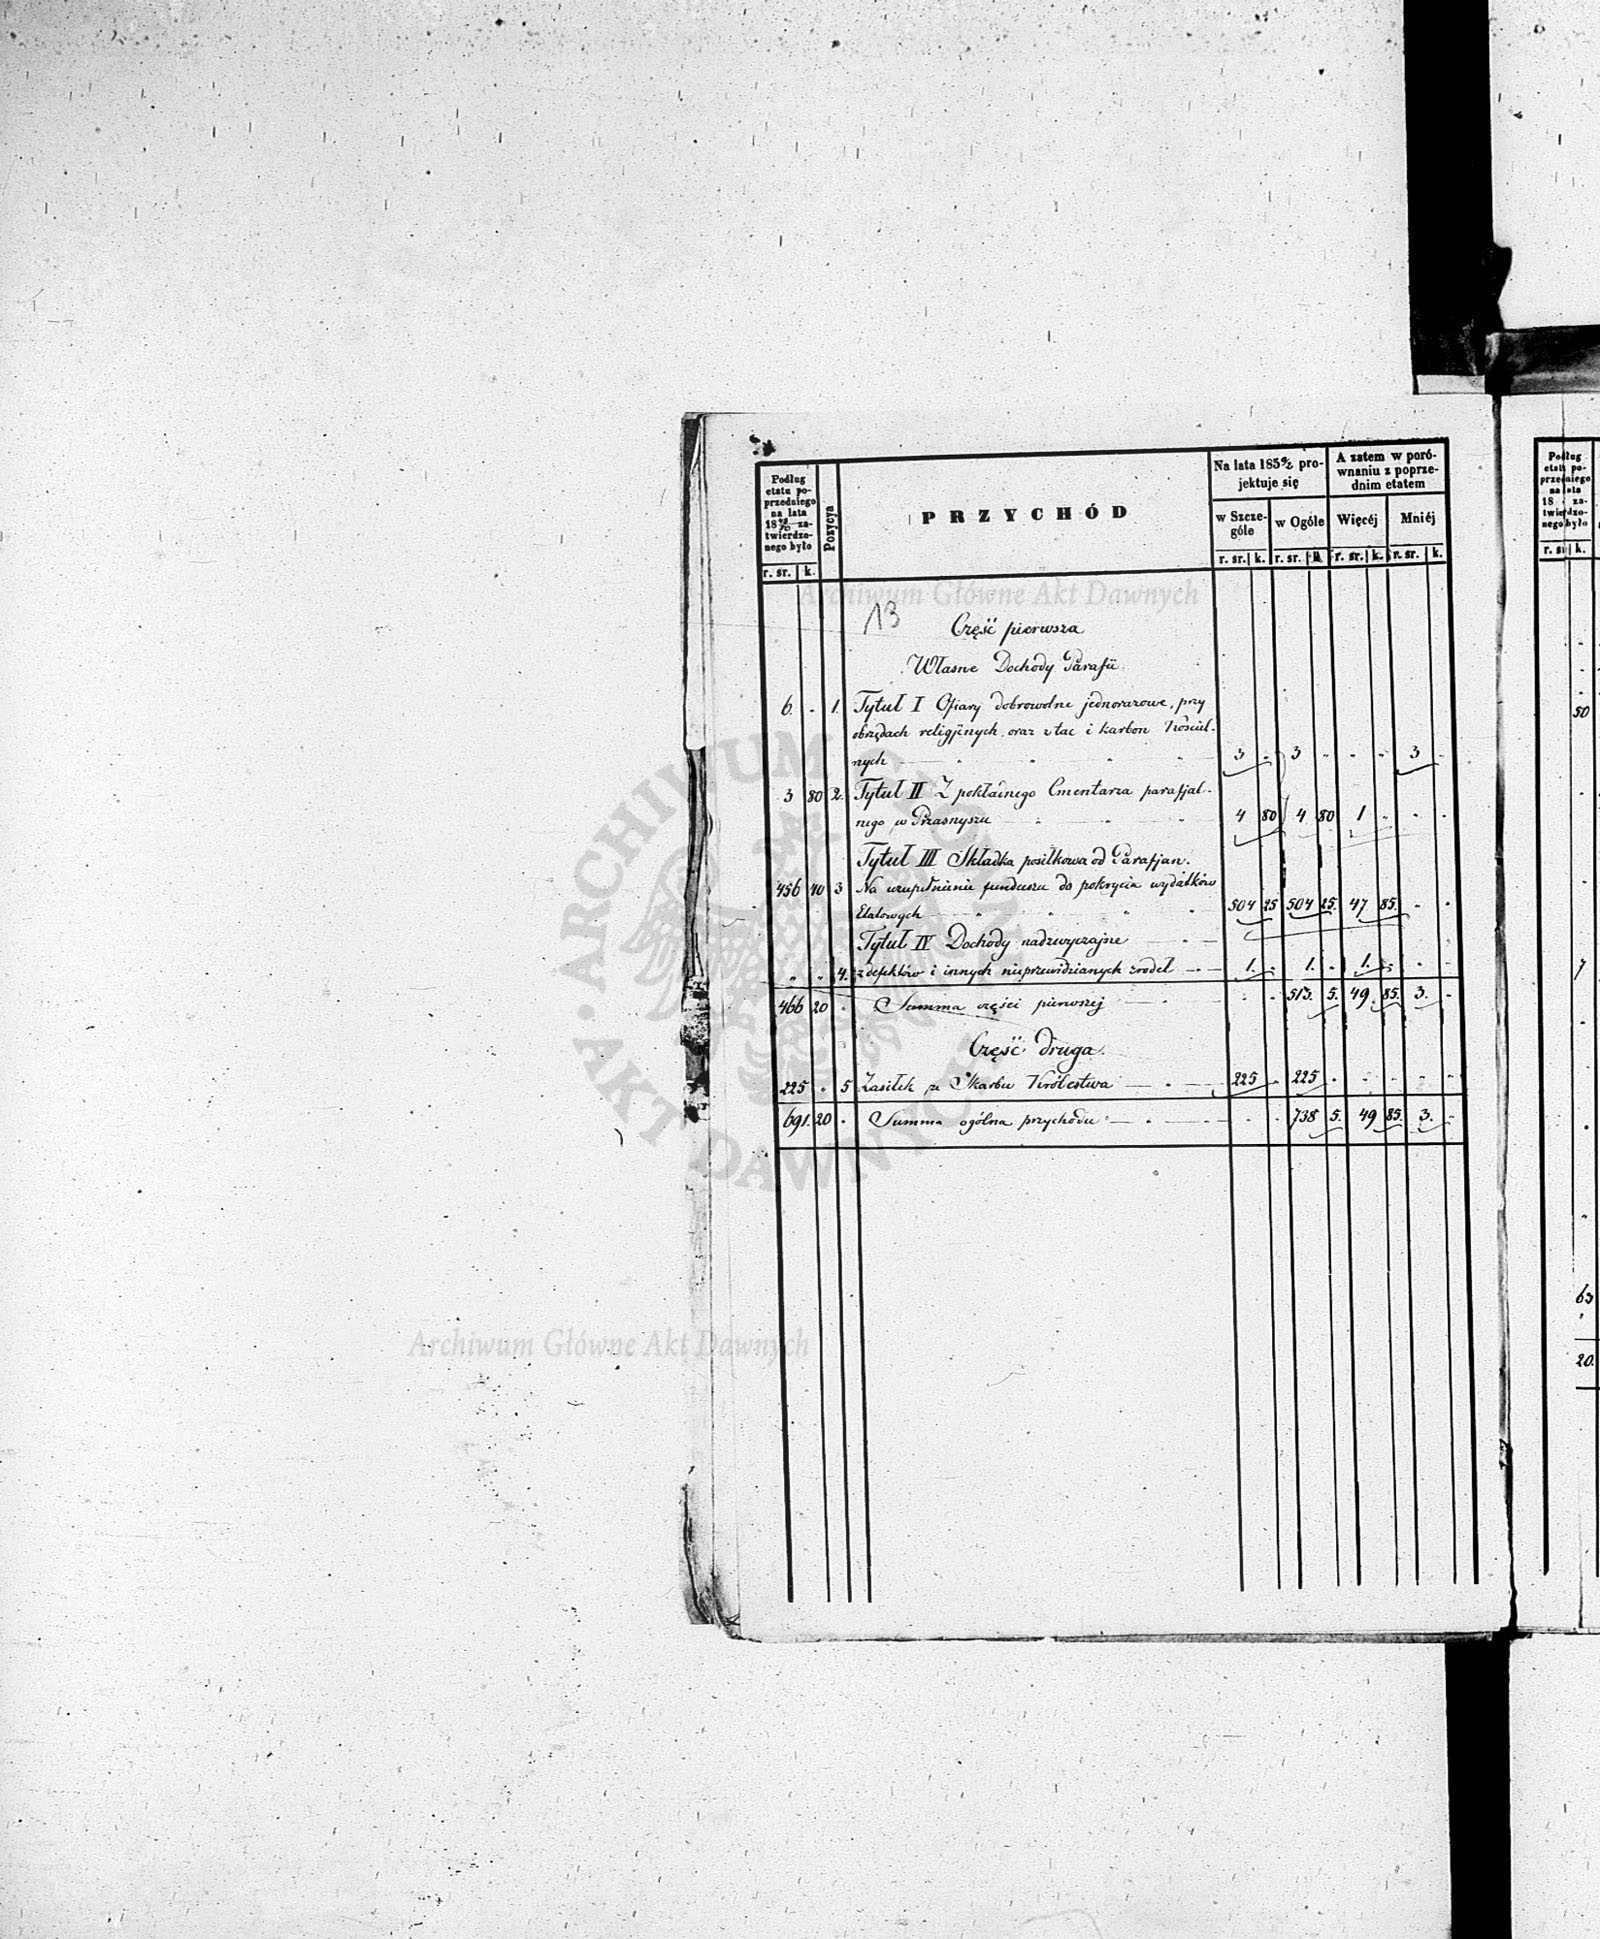 Podług etatu poprzedniego na lata 18 zatwierdzonego było
r. sr. k.
Pozycya
PRZYCHÓD
Na lata 185 projektuje się
w Szczególe
w Ogóle
r. sr. k. r. sr. k.
A zatem w porównaniu z poprzednim etatem
Więcéj
Mniéj
r. sr. k. r. sr. k.
13
Część pierwsza
Własne Dochody Parafii
6. " 1. Tytuł I Ofiary dobrowolne jednorazowe, przy
obrzędach religijnych, oraz z tac i karbon Kościel-
nych 3 " 3 " " " 3 "
3 80 2. Tytuł II Z pokładnego Cmentarza parafjal-
nego w Przasnyszu 4 80 4 80 1 " " "
Tytuł III Składka posiłkowa od Parafjan.
456 40 3 Na uzupełnienie funduszu do pokrycia wydatków
Etatowych 504 25 504 25. 47 85. " "
Tytuł IV Dochody nadzwyczajne
" " 4. z defektów i innych nieprzewidzianych zrodeł 1. " 1. " 1. " " "
466 20 " Summa części pierwszej " " 513. 5. 49. 85. 3. "
Część druga.
225 " 5 Zasiłek ze Skarbu Królestwa 225 " 225 " " " " "
691. 20 " Summa ogólna przychodu " " 738 5. 49 85. 3. "
Podług etatu poprzedniego na lata 18 zatwierdzonego było
r. sr. k.
50
7
63
20.
Archiwum Główne Akt Dawnych
ARCHIWUM GŁÓWNE AKT DAWNYCH
Archiwum Główne Akt Dawnych